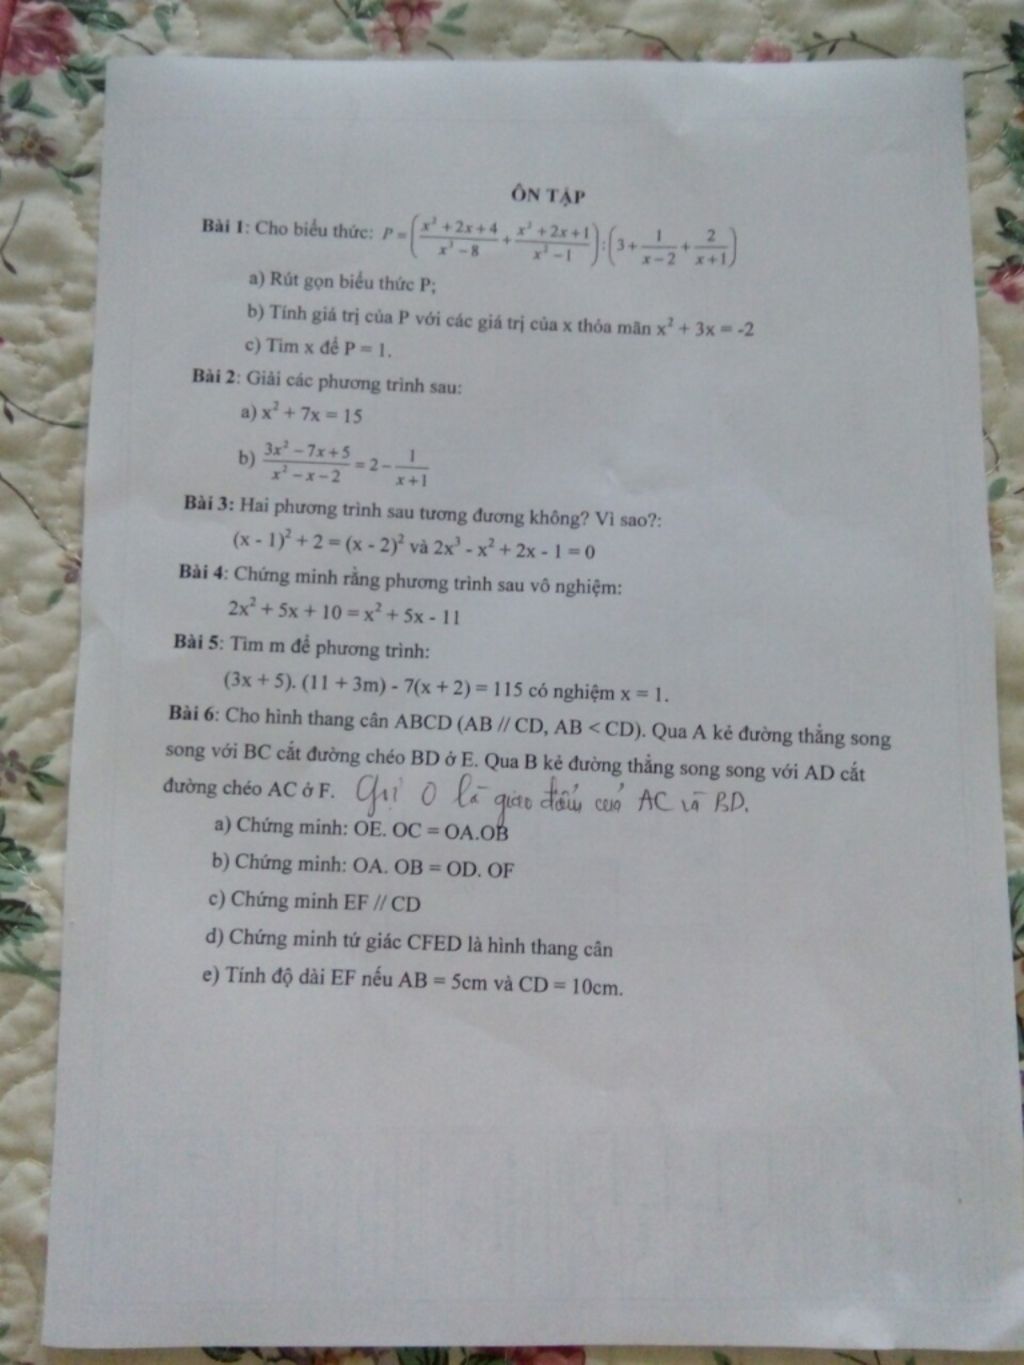 ÔN TẬP
Bài 1: Cho biểu thức: P = ( (x² + 2x + 4)/(x³ − 8) + (x² + 2x + 1)/(x² − 1) ) : ( 3 + 1/(x − 2) + 2/(x + 1) )
a) Rút gọn biểu thức P;
b) Tính giá trị của P với các giá trị của x thỏa mãn x² + 3x = -2
c) Tìm x để P = 1.
Bài 2: Giải các phương trình sau:
a) x² + 7x = 15
b) (3x² − 7x + 5)/(x² − x − 2) = 2 − 1/(x + 1)
Bài 3: Hai phương trình sau tương đương không? Vì sao?:
(x - 1)² + 2 = (x - 2)² và 2x³ - x² + 2x - 1 = 0
Bài 4: Chứng minh rằng phương trình sau vô nghiệm:
2x² + 5x + 10 = x² + 5x - 11
Bài 5: Tìm m để phương trình:
(3x + 5). (11 + 3m) - 7(x + 2) = 115 có nghiệm x = 1.
Bài 6: Cho hình thang cân ABCD (AB // CD, AB < CD). Qua A kẻ đường thẳng song
song với BC cắt đường chéo BD ở E. Qua B kẻ đường thẳng song song với AD cắt
đường chéo AC ở F. Gọi O là giao điểm của AC và BD.
a) Chứng minh: OE. OC = OA.OB
b) Chứng minh: OA. OB = OD. OF
c) Chứng minh EF // CD
d) Chứng minh tứ giác CFED là hình thang cân
e) Tính độ dài EF nếu AB = 5cm và CD = 10cm.